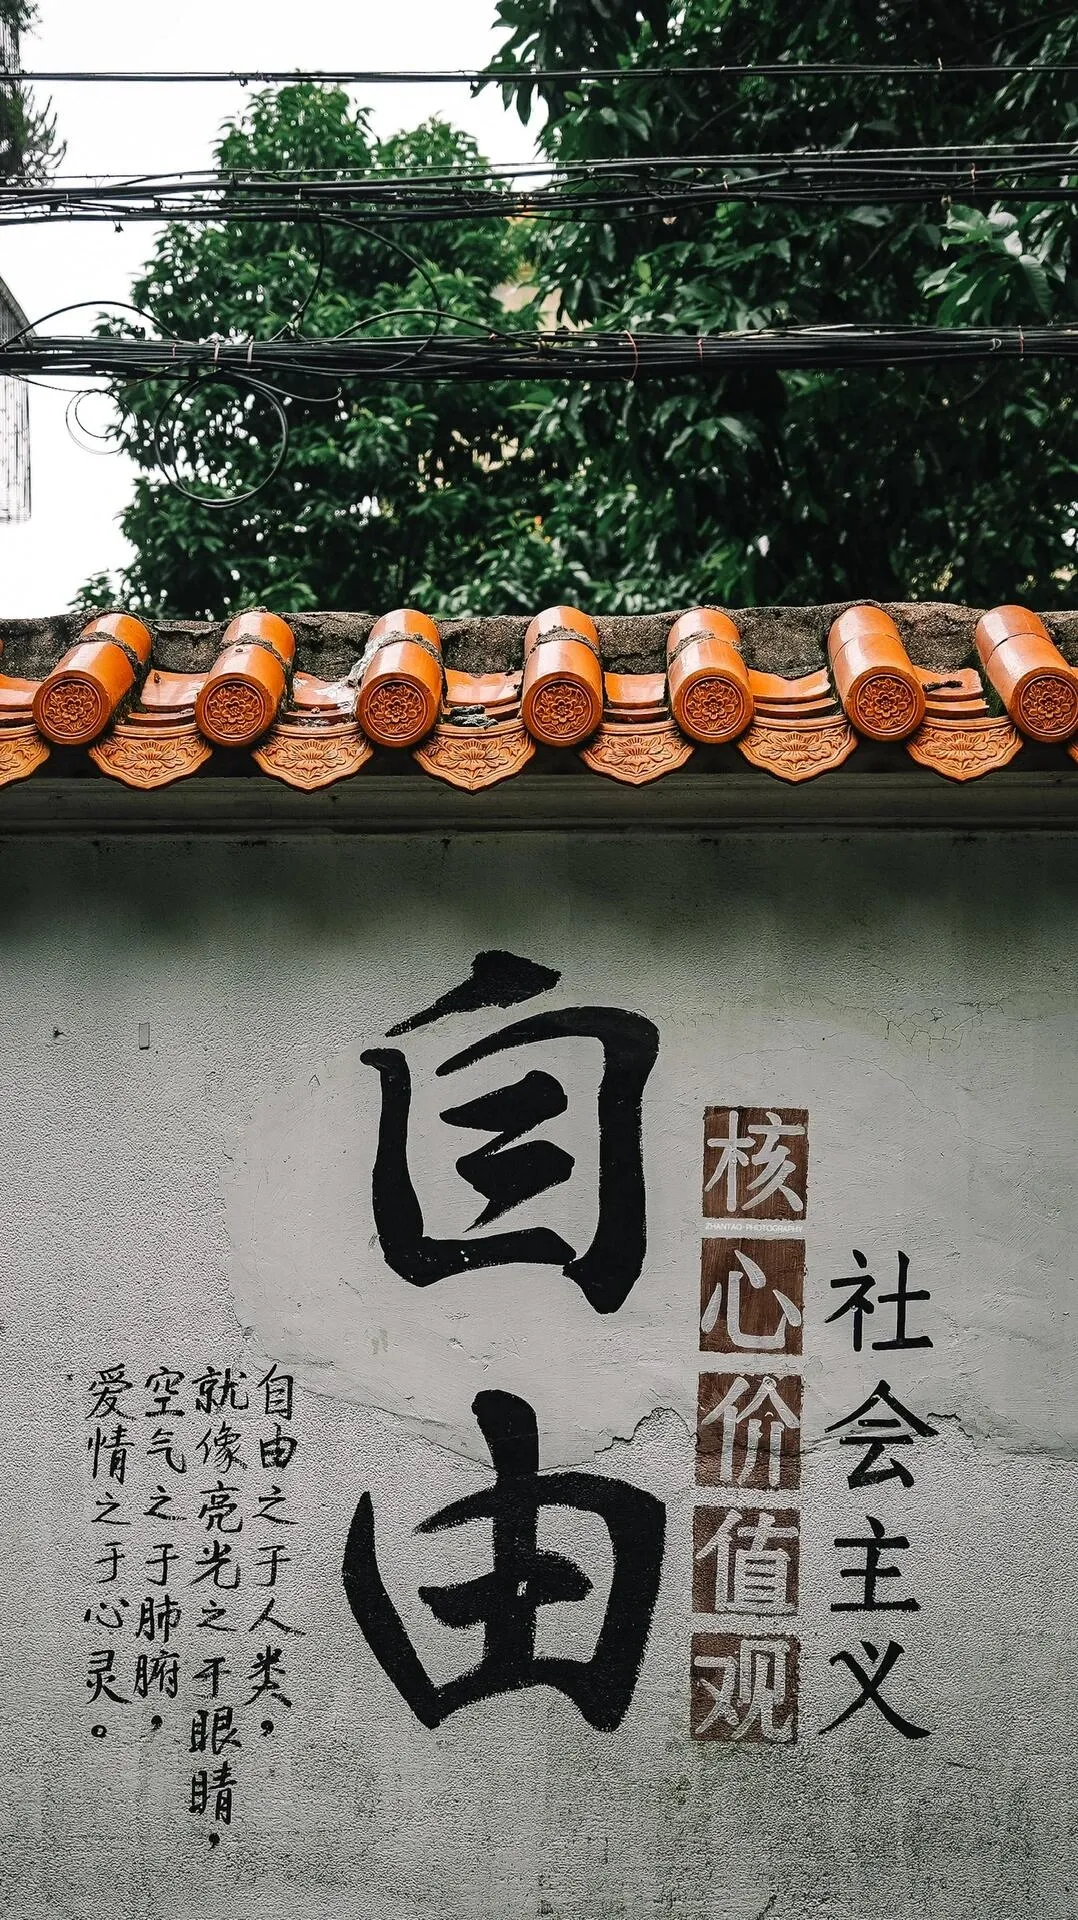 社会主义
核心价值观
ZHANTAO·PHOTOGRAPHY
自由
自由之于人类，
就像亮光之于眼睛，
空气之于肺腑，
爱情之于心灵。